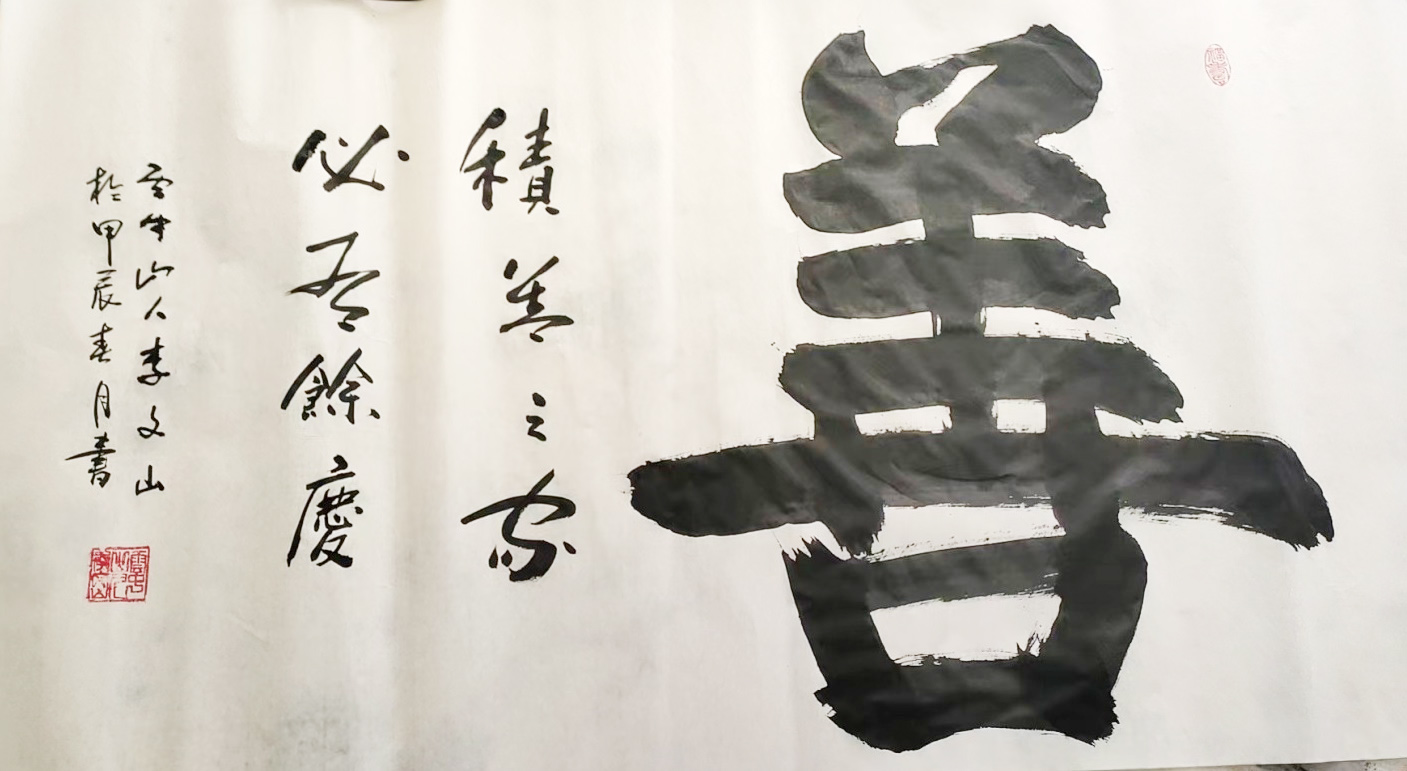 善
積善之家
必有餘慶
雲牛山人李文山
於甲辰春月書